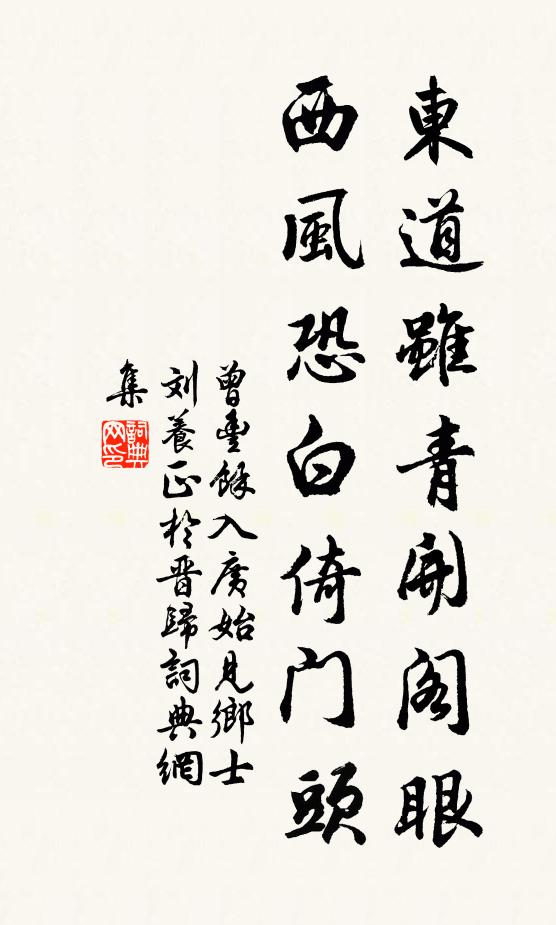 東道雖青開閣眼
西風恐白倚门頭
曾豊餘入廣始見鄉士
刘養正於晋歸詞典網
集
詞典网印